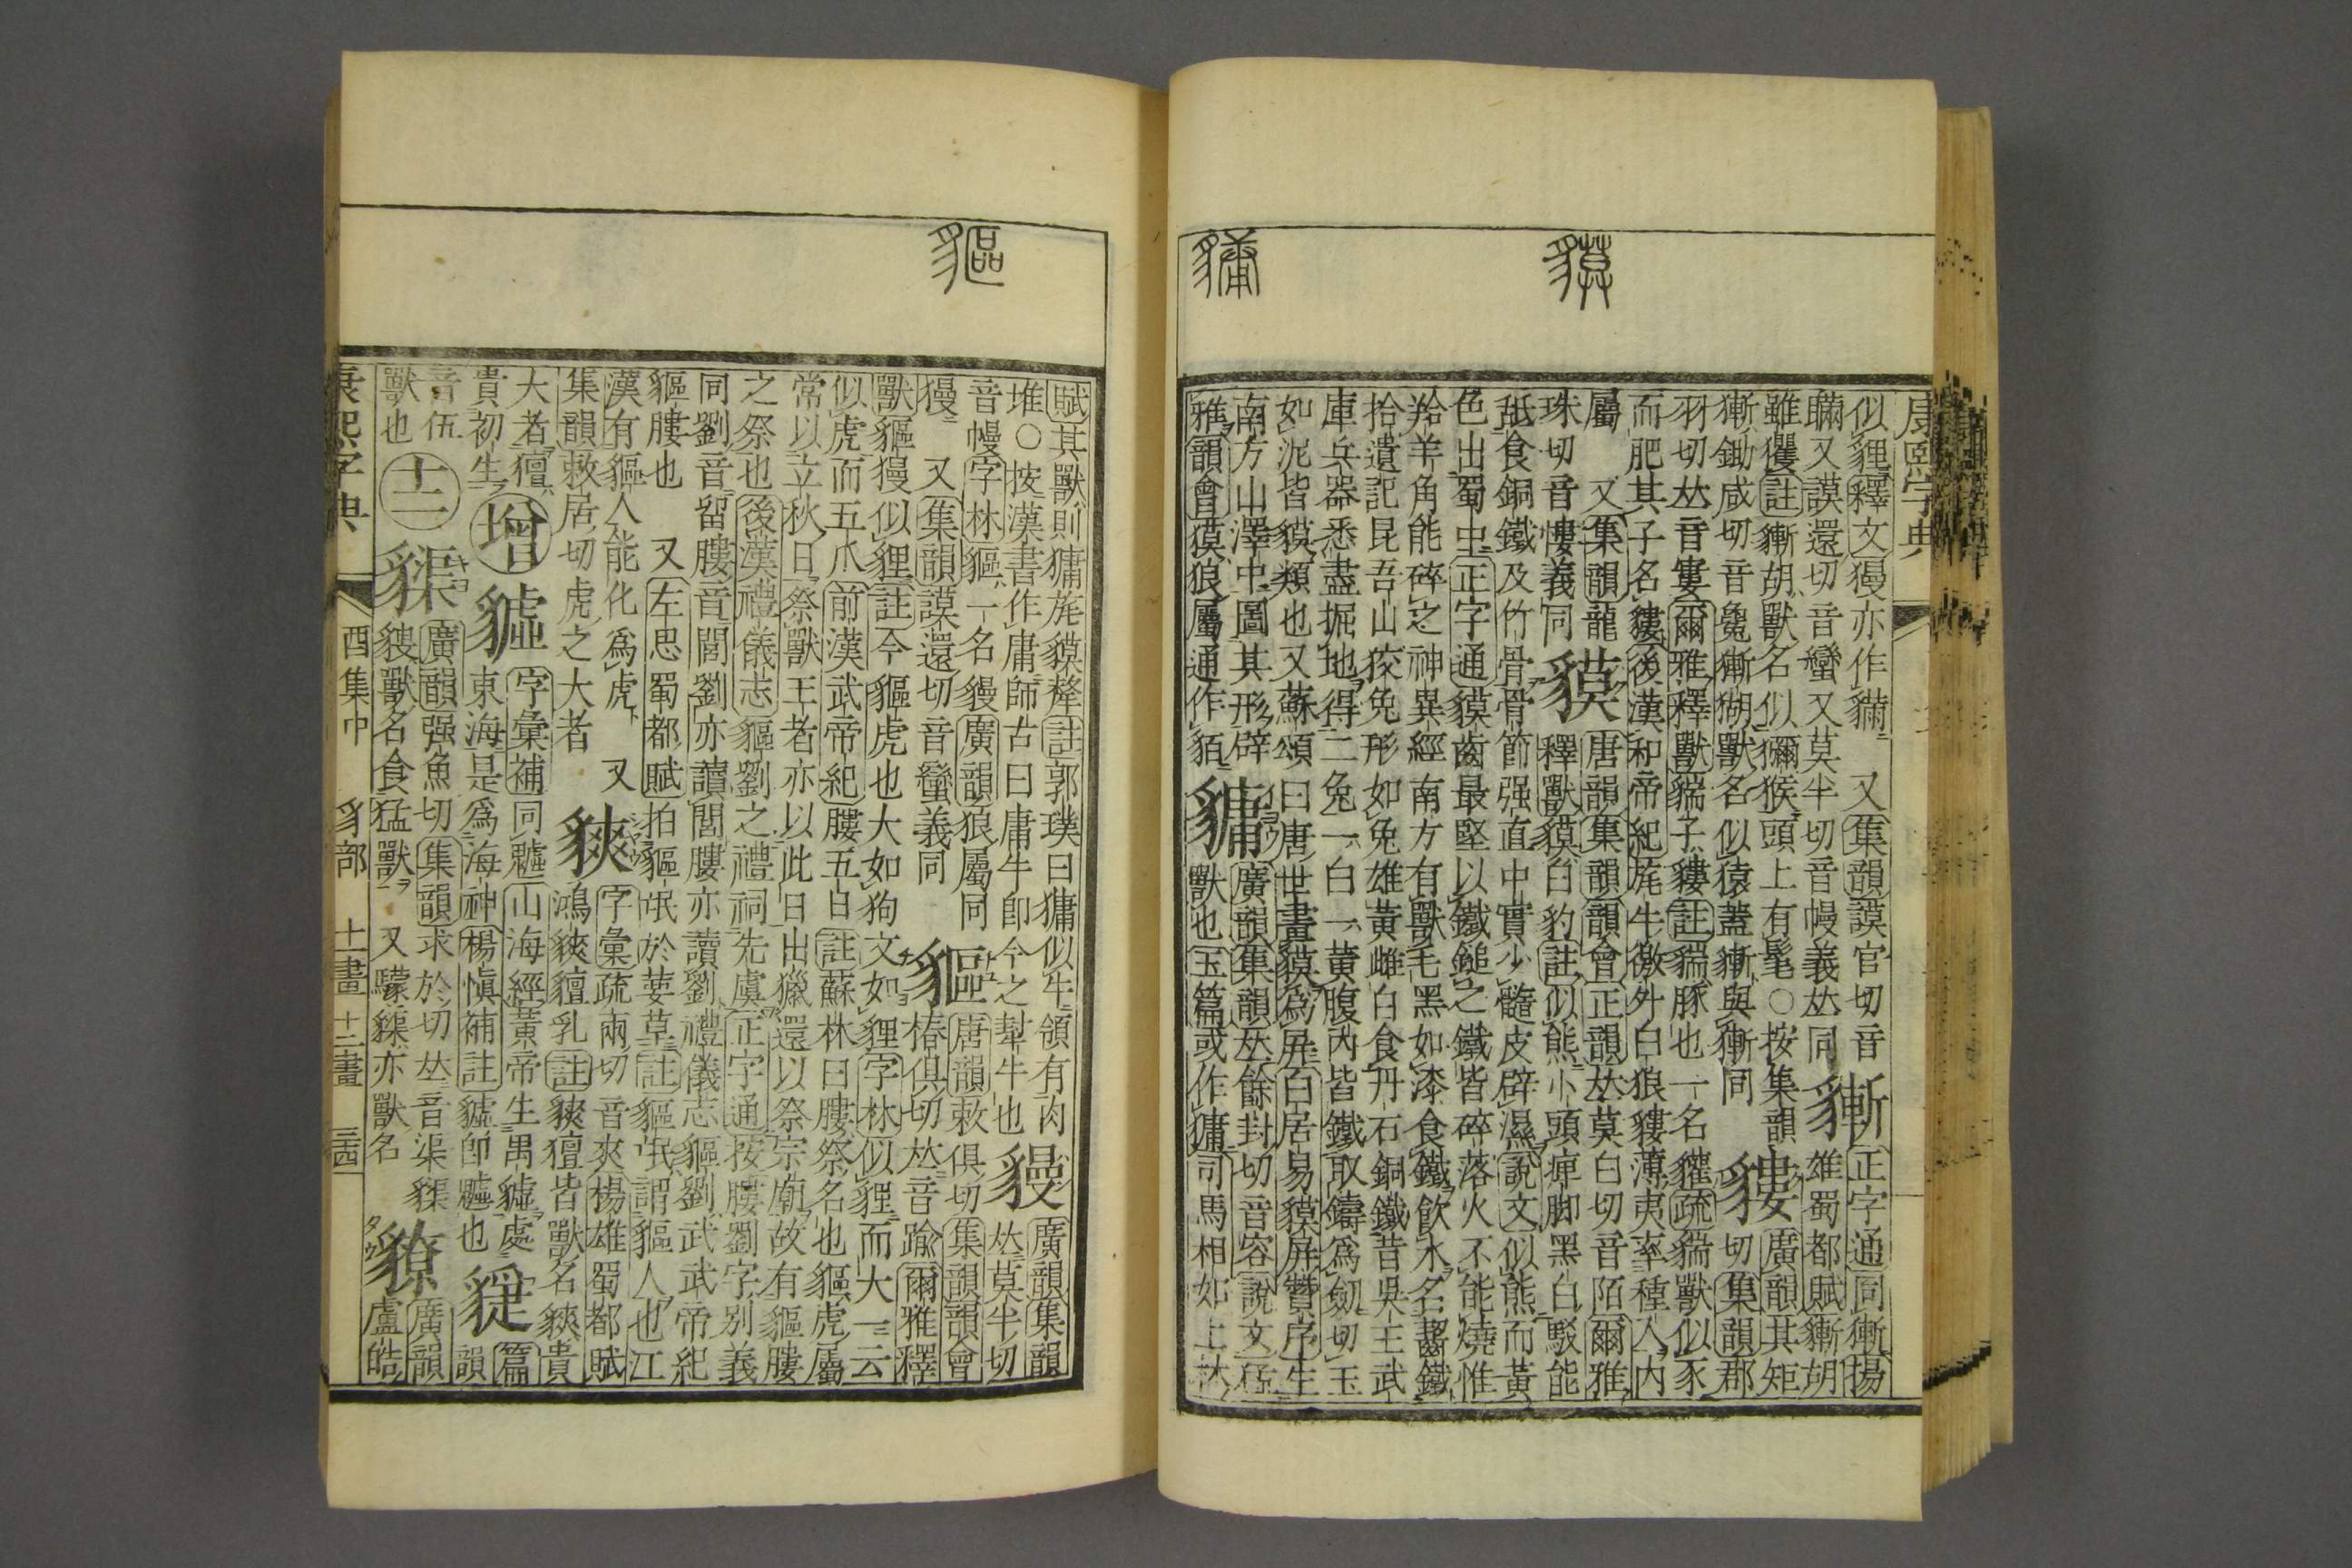 貘
𧳓
康熙字典
似貍釋文獌亦作𧳖 又集韻謨官切音
瞞又謨還切音蠻又莫半切音幔義𠀤同 正字通同獑揚
雄蜀都賦獑胡
雖玃註獑胡獸名似獼猴頭上有髦○按集韻
獑鋤咸切音巉獑猢獸名似猿蓋獑與獑同 貗 廣韻其矩切集韻郡
羽切𠀤音窶爾雅釋獸貒子貗註貒豚也一名貛疏貒獸似豕
而肥其子名貗後漢和帝紀旄牛徼外白狼貗薄夷率種人內
屬 又集韻龍
珠切音慺義同 貘 唐韻集韻韻會正韻𠀤莫白切音陌爾雅
釋獸貘白豹註似熊小頭痺脚黑白駁能
舐食銅鐵及竹骨骨節强直中實少髓皮辟濕說文似熊而黃
色出蜀中正字通貘齒最堅以鐵鎚之鐵皆碎落火不能燒惟
羚羊角能碎之神異經南方有獸毛黑如漆食鐵飮水名齧鐵
拾遺記昆吾山狡兔形如兔雄黃雌白食丹石銅鐵昔吳王武
庫兵器悉盡掘地得二兔一白一黃腹內皆鐵取鑄爲劒切玉
如泥皆貘類也又蘇頌曰唐世畫貘爲屏白居易貘屏贊序生
南方山澤中圖其形辟
雅韻會貘狼屬通作貊 𧳓 廣韻集韻𠀤餘封切音容說文猛
獸也玉篇或作㺎司馬相如上林
貙
賦其獸則㺎旄貘犛註郭璞曰㺎似牛領有肉
堆○按漢書作庸師古曰庸牛卽今之犎牛也 獌 廣韻集韻
𠀤莫半切
音幔字林貙一名獌廣韻狼屬同
獌 又集韻謨還切音蠻義同 貙 唐韻敕俱切集韻韻會
椿俱切𠀤音踰爾雅釋
獸貙獌似貍註今貙虎也大如狗文如貍字林似貍而大一云
似虎而五爪前漢武帝紀膢五日註蘇林曰膢祭名也貙虎屬
常以立秋日祭獸王者亦以此日出獵還以祭宗廟故有貙膢
之祭也後漢禮儀志貙劉之禮祠先虞正字通按膢劉字別義
同劉音留膢音閭劉亦讀閭膢亦讀劉禮儀志貙劉武武帝紀
貙膢也 又左思蜀都賦拍貙氓於葽草註貙氓謂貙人也江
漢有貙人能化爲虎 又
集韻敕居切虎之大者 䝄 字彙疏兩切音爽楊雄蜀都賦
鴻䝄䝋乳註䝄獶皆獸名䝄貴
大者獶
貴初生 增 䝞 字彙補同䰣山海經黃帝生禺䝞處
東海是爲海神楊愼補註䝞卽䰣也 篇
韻
音伍
獸也 十二 䝣 廣韻强魚切集韻求於切𠀤音渠䝣
䝤獸名食猛獸 又䮵䝣亦獸名 䝤 廣韻
盧皓
康熙字典
酉集中 豸部 十一畫 十二畫 三四